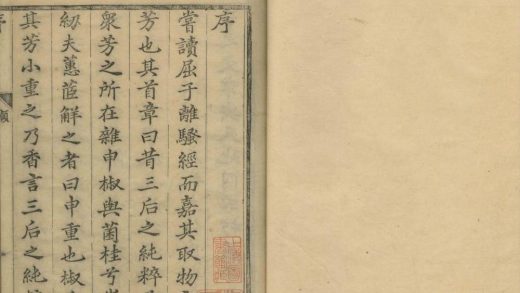 序
嘗讀屈子離騷經而嘉其取物
芳也其首章曰昔三后之純粹
衆芳之所在雜申椒與菌桂兮
紉夫蕙茝觧之者曰申重也椒
其芳小重之乃香言三后之純
序